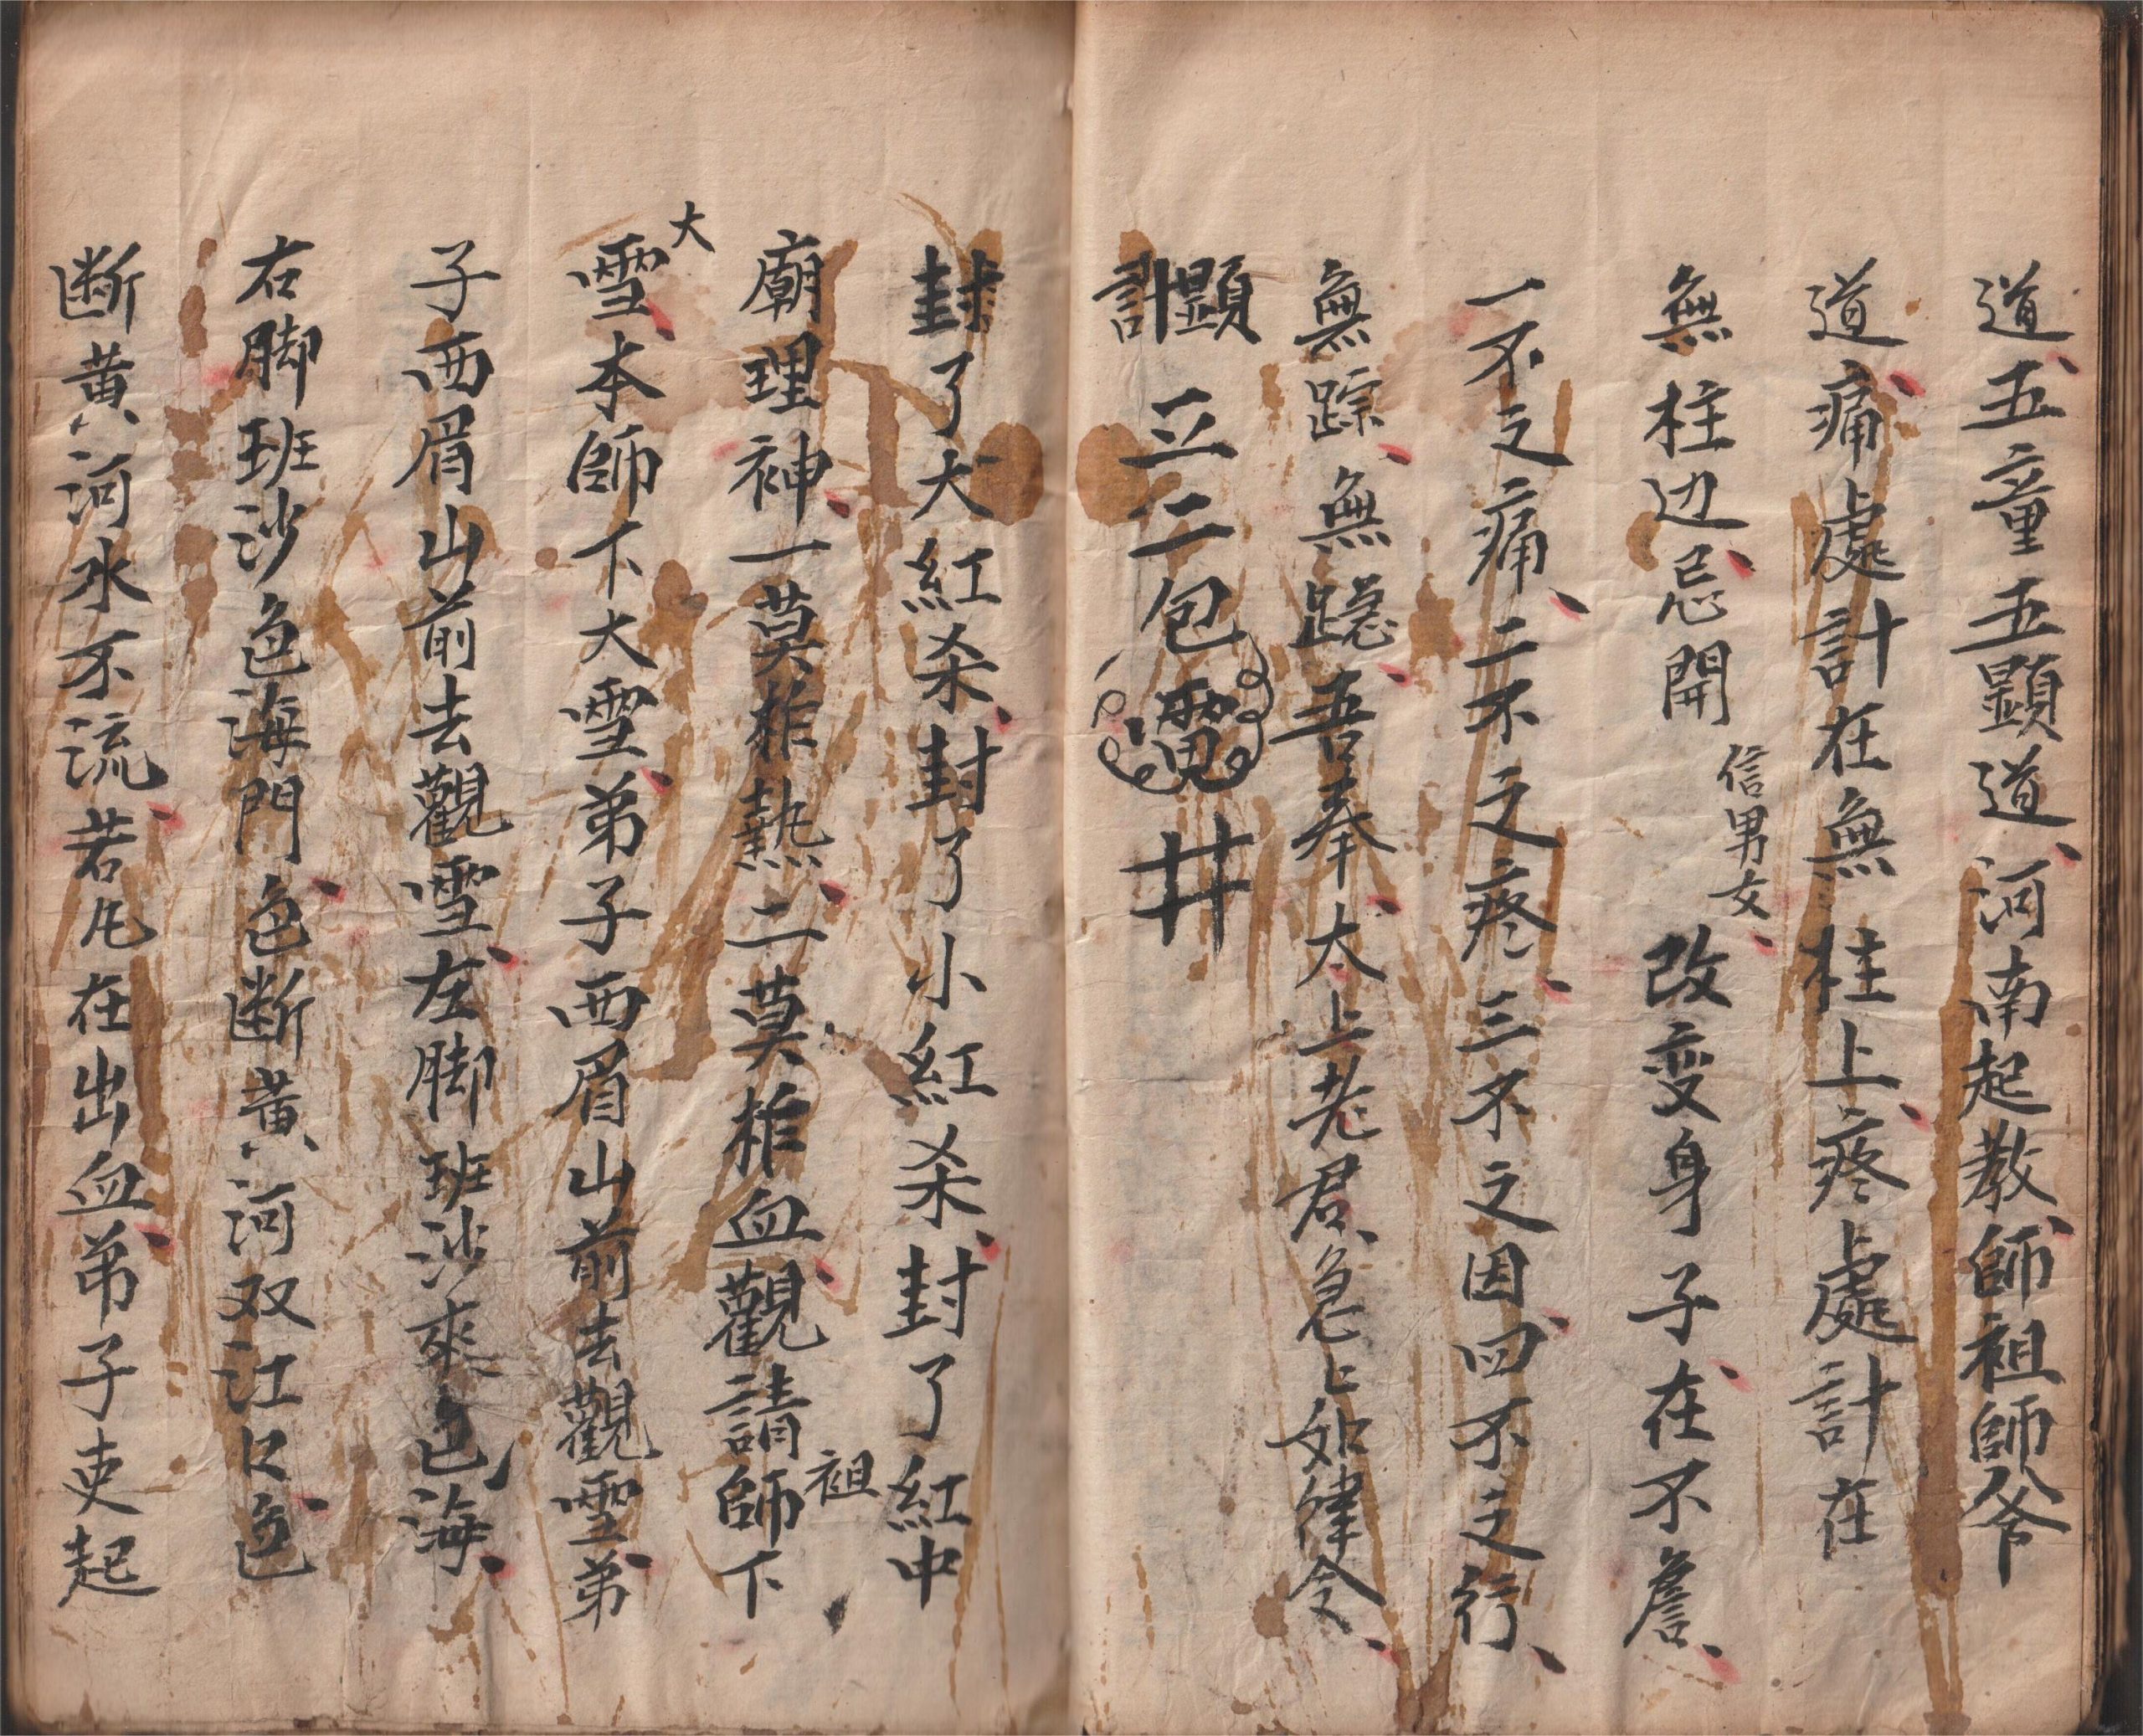 道、五童五顕道、河南起教、師祖師爷
道、痛處計在無柱上、疼處計在
無柱边、忌開信男女、改变身子、在不詹、
一不之痛、二不之疼、三不之因、四不之行、
無踪、無跡、吾奉太上老君、急急如律令、
顕計 立二包 井
封了大紅杀、封了小紅杀、封了紅中
廟理神、一莫柞熱、二莫柞血、觀請祖師下
大雪、本師下大雪、弟子西眉山前去觀雪、弟
子西眉山前去觀雪、左脚班沙來色海、
右脚班沙色海門、色断黃河双江口、色
断黃河水不流、若凡在出血、弟子吏起